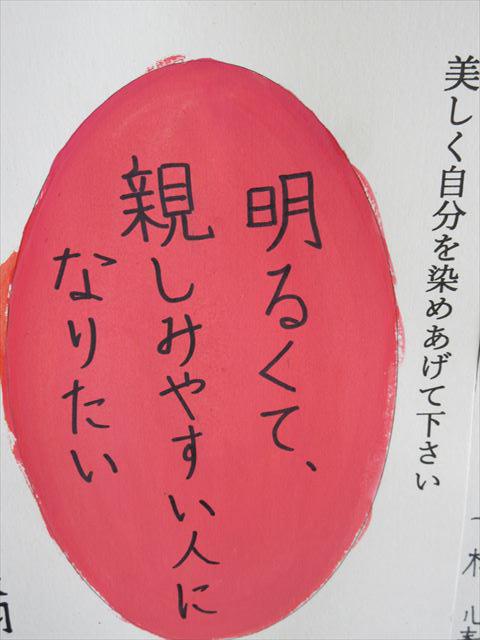 美しく自分を染めあげて下さい
明るくて、
親しみやすい人に
なりたい